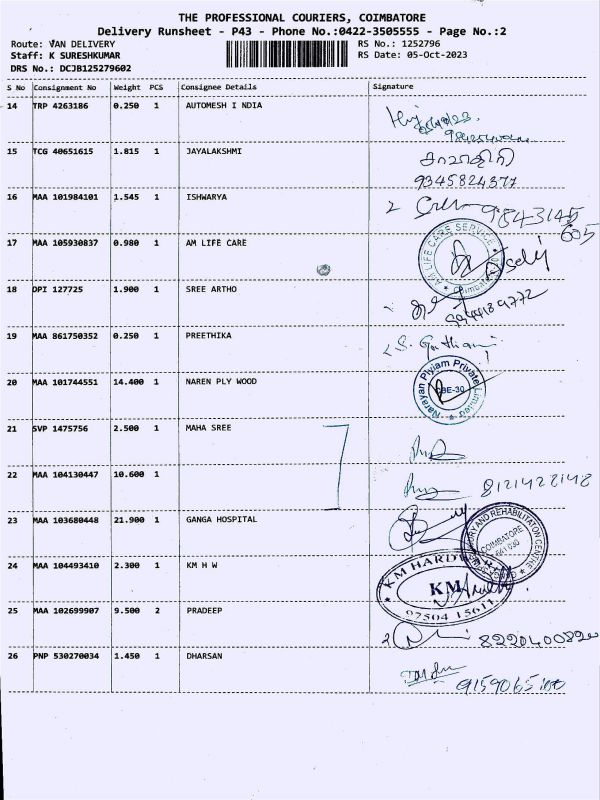 THE PROFESSIONAL COURIERS, COIMBATORE
Delivery Runsheet - P43 - Phone No.:0422-3505555 - Page No.:2
Route: VAN DELIVERY
RS No.: 1252796
Staff: K SURESHKUMAR
RS Date: 05-Oct-2023
DRS No.: DCJB125279602
S No Consignment No Weight PCS Consignee Details Signature
14 TRP 4263186 0.250 1 AUTOMESH I NDIA
15 TCG 40651615 1.815 1 JAYALAKSHMI
9345824377
16 MAA 101984101 1.545 1 ISHWARYA
2 9843145
605
17 MAA 105930837 0.980 1 AM LIFE CARE
AM LIFE CARE SERVICE
Coimbatore
18 DPI 127725 1.900 1 SREE ARTHO
19 MAA 861750352 0.250 1 PREETHIKA
20 MAA 101744551 14.400 1 NAREN PLY WOOD
Narayan Plylam Private Limited
CBE-30
21 SVP 1475756 2.500 1 MAHA SREE
22 MAA 104130447 10.600 1
8121422142
23 MAA 103680448 21.900 1 GANGA HOSPITAL
AND REHABILITATION CENTRE
COIMBATORE
641 030
24 MAA 104493410 2.300 1 KM H W
KM HARDWARE
KM
97504 15611
25 MAA 102699907 9.500 2 PRADEEP
2
26 PNP 530270034 1.450 1 DHARSAN